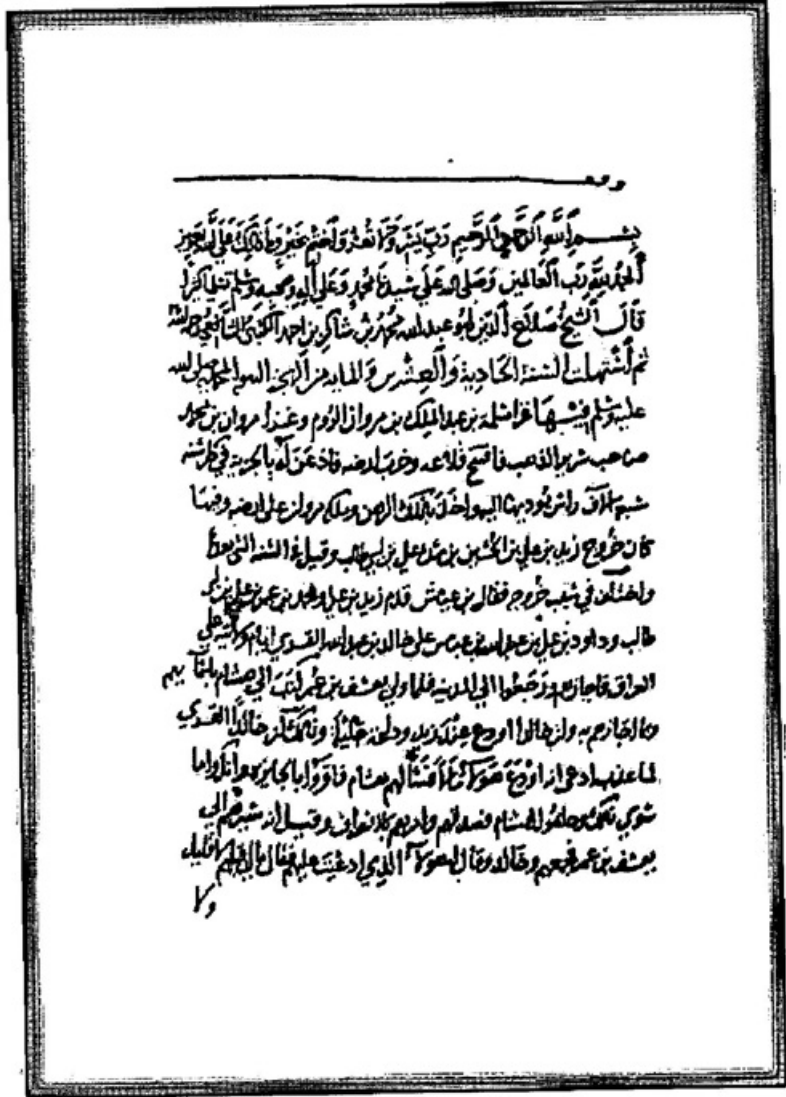 بِسْمِ اللَّهِ الرَّحْمَنِ الرَّحِيمِ رَبِّ يَسِّرْ واختم بخير
الحمد لله رب العالمين وصلى الله على سيدنا محمد وعلى آله وصحبه وسلم تسليما كثيرا
قال الشيخ صلاح الدين ابو عبد الله محمد بن شاكر بن احمد الكتبي الشافعي رحمه الله
ثم استهلت السنة الحادية والعشرين والمايه من الهجرة النبوية المحمدية صلى الله
عليه وسلم فيها غزا مسلمة بن عبد الملك بن مروان الروم وغزا مروان بن محمد
صاحب سرير الذهب فافتتح قلاعه وخرب ارضه فاذعن له بالجزية في كل سنه
الف راس يوديها اليه واخذ بذلك الرهن وملكه مروان على ارضه وفيها
كان خروج زيد بن علي بن الحسين بن علي بن ابي طالب وقيل في السنه التي بعدها
واختلف في سبب خروجه فقال بن عياش قدم زيد بن علي ومحمد بن عمر بن علي بن ابي
طالب وداود بن علي بن عبد الله بن عباس على خالد بن عبد الله القسري ايام ولايته على
العراق فاجازهم ورجعوا الي المدينه فلما ولي يوسف بن عمر كتب الي هشام باسمايهم
وما اجازهم به وان خالدا اودع عند زيد وداود مالا خالدا القسري
لما عذب ادعى انه اودع هولاء مالا فسالهم هشام فاقروا بالجايزه وانكروا ما
سوي ذلك وحلفوا لهشام فصدقهم وامرهم بالانصراف وقيل انه سيرهم الي
يوسف بن عمر فجمعهم وخالد وقال هولاء الذي ادعيت عليهم فقال مالي قبلهم لا قليل
ولا